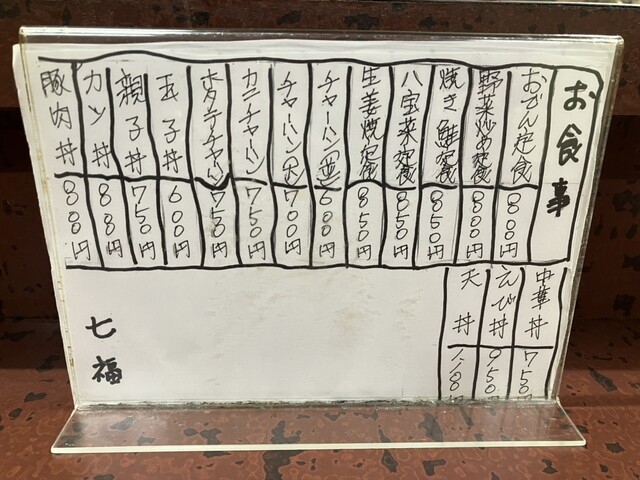 お食事
おでん定食 800円
野菜炒め定食 800円
焼き鮭定食 850円
八宝菜定食 850円
生姜焼定食 850円
チャーハン(並) 600円
チャーハン(大) 700円
カニチャーハン 750円
ホタテチャーハン 750円
玉子丼 600円
親子丼 750円
カツ丼 880円
豚肉丼 800円
中華丼 750
えび丼 950
天丼
七福